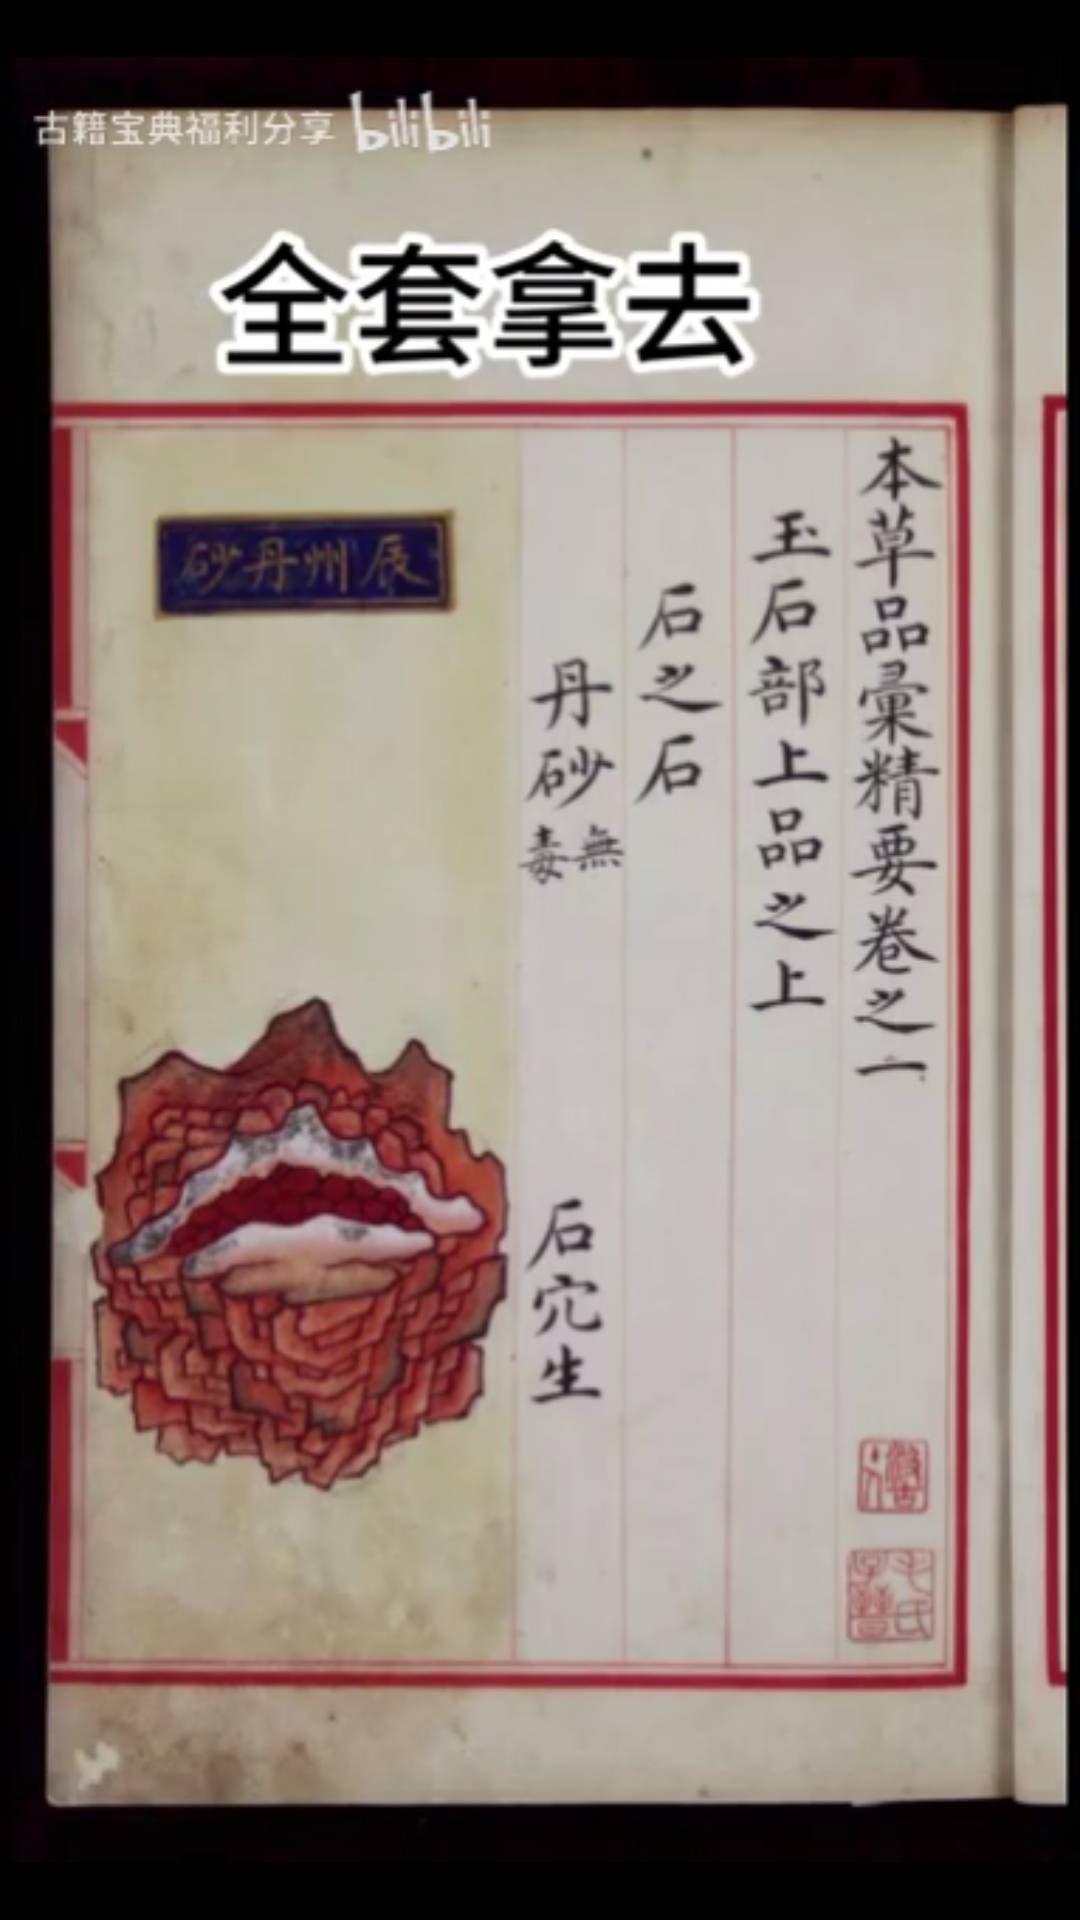 古籍宝典福利分享 bilibili
全套拿去
本草品彙精要卷之一
玉石部上品之上
石之石
丹砂 無毒 石穴生
辰州丹砂
毛氏子晉